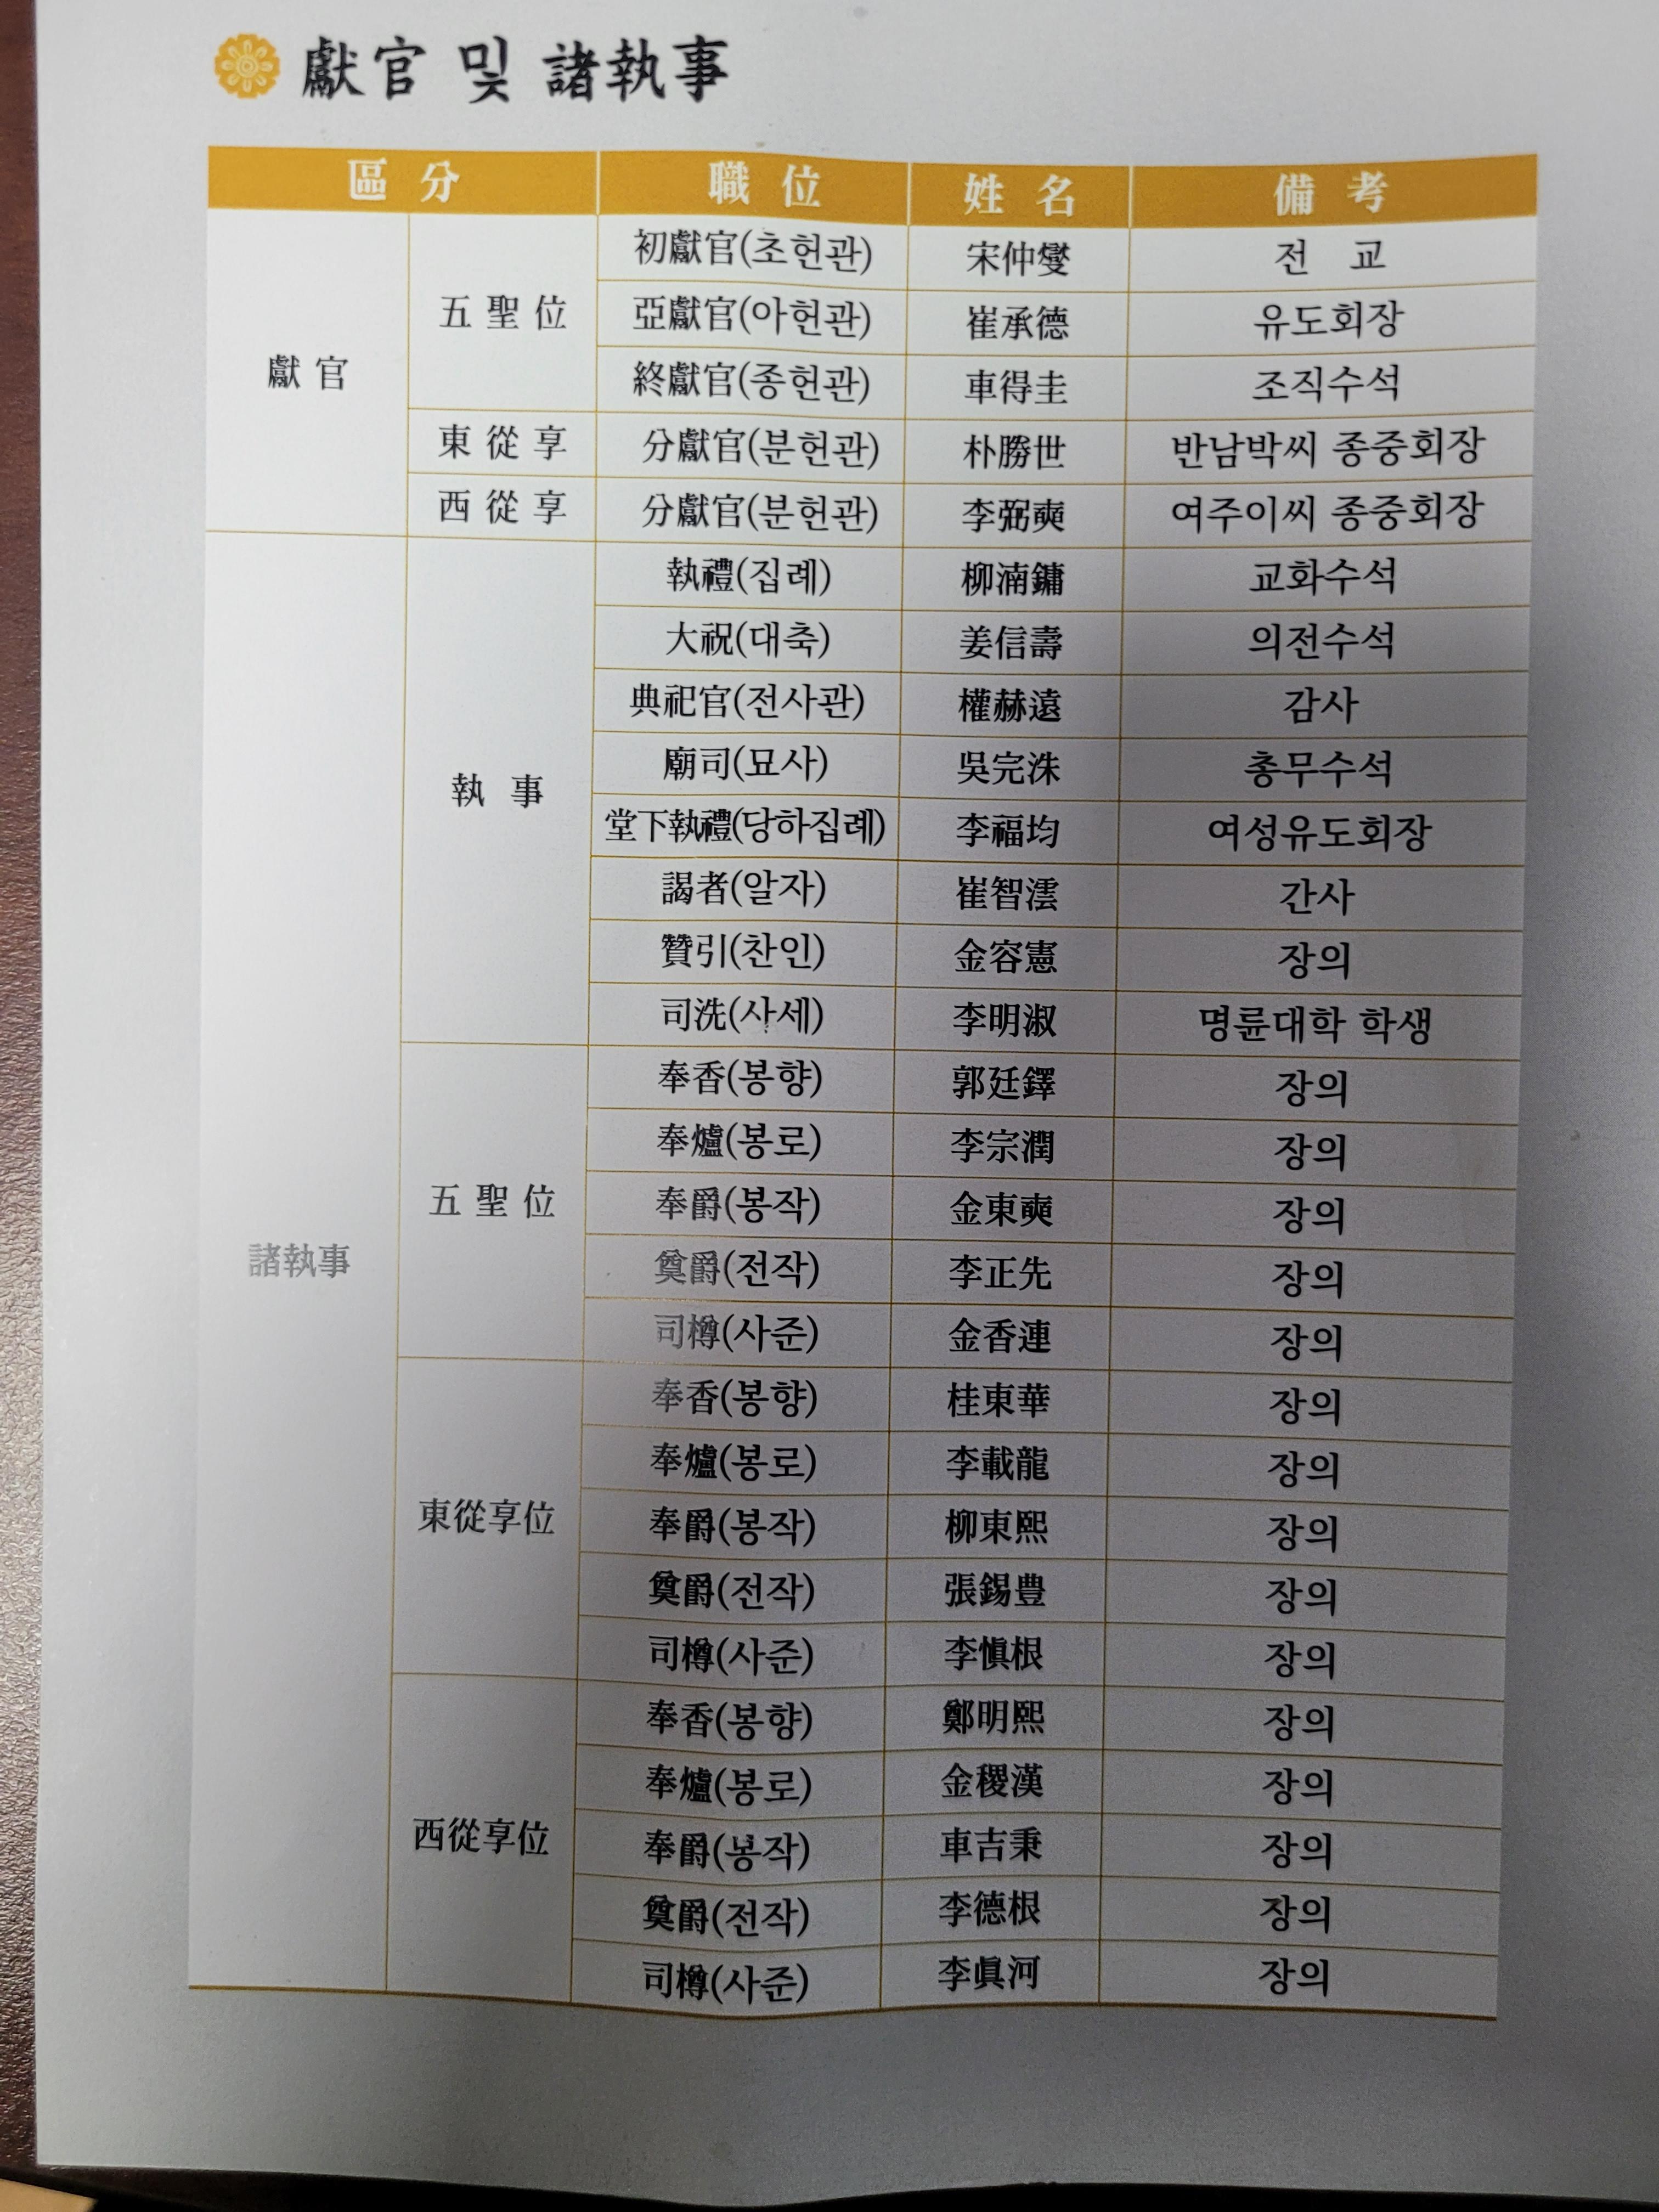 獻官 및 諸執事
區分 職位 姓名 備考
獻官 五聖位 初獻官(초헌관) 宋仲燮 전 교
亞獻官(아헌관) 崔承德 유도회장
終獻官(종헌관) 車得圭 조직수석
東從享 分獻官(분헌관) 朴勝世 반남박씨 종중회장
西從享 分獻官(분헌관) 李弼奭 여주이씨 종중회장
諸執事 執事 執禮(집례) 柳湳鏞 교화수석
大祝(대축) 姜信壽 의전수석
典祀官(전사관) 權赫遠 감사
廟司(묘사) 吳完洙 총무수석
堂下執禮(당하집례) 李福均 여성유도회장
謁者(알자) 崔智澐 간사
贊引(찬인) 金容憲 장의
司洗(사세) 李明淑 명륜대학 학생
五聖位 奉香(봉향) 郭廷鐸 장의
奉爐(봉로) 李宗潤 장의
奉爵(봉작) 金東奭 장의
奠爵(전작) 李正先 장의
司樽(사준) 金香連 장의
東從享位 奉香(봉향) 桂東華 장의
奉爐(봉로) 李載龍 장의
奉爵(봉작) 柳東熙 장의
奠爵(전작) 張錫豊 장의
司樽(사준) 李愼根 장의
西從享位 奉香(봉향) 鄭明熙 장의
奉爐(봉로) 金稷漢 장의
奉爵(봉작) 車吉秉 장의
奠爵(전작) 李德根 장의
司樽(사준) 李眞河 장의